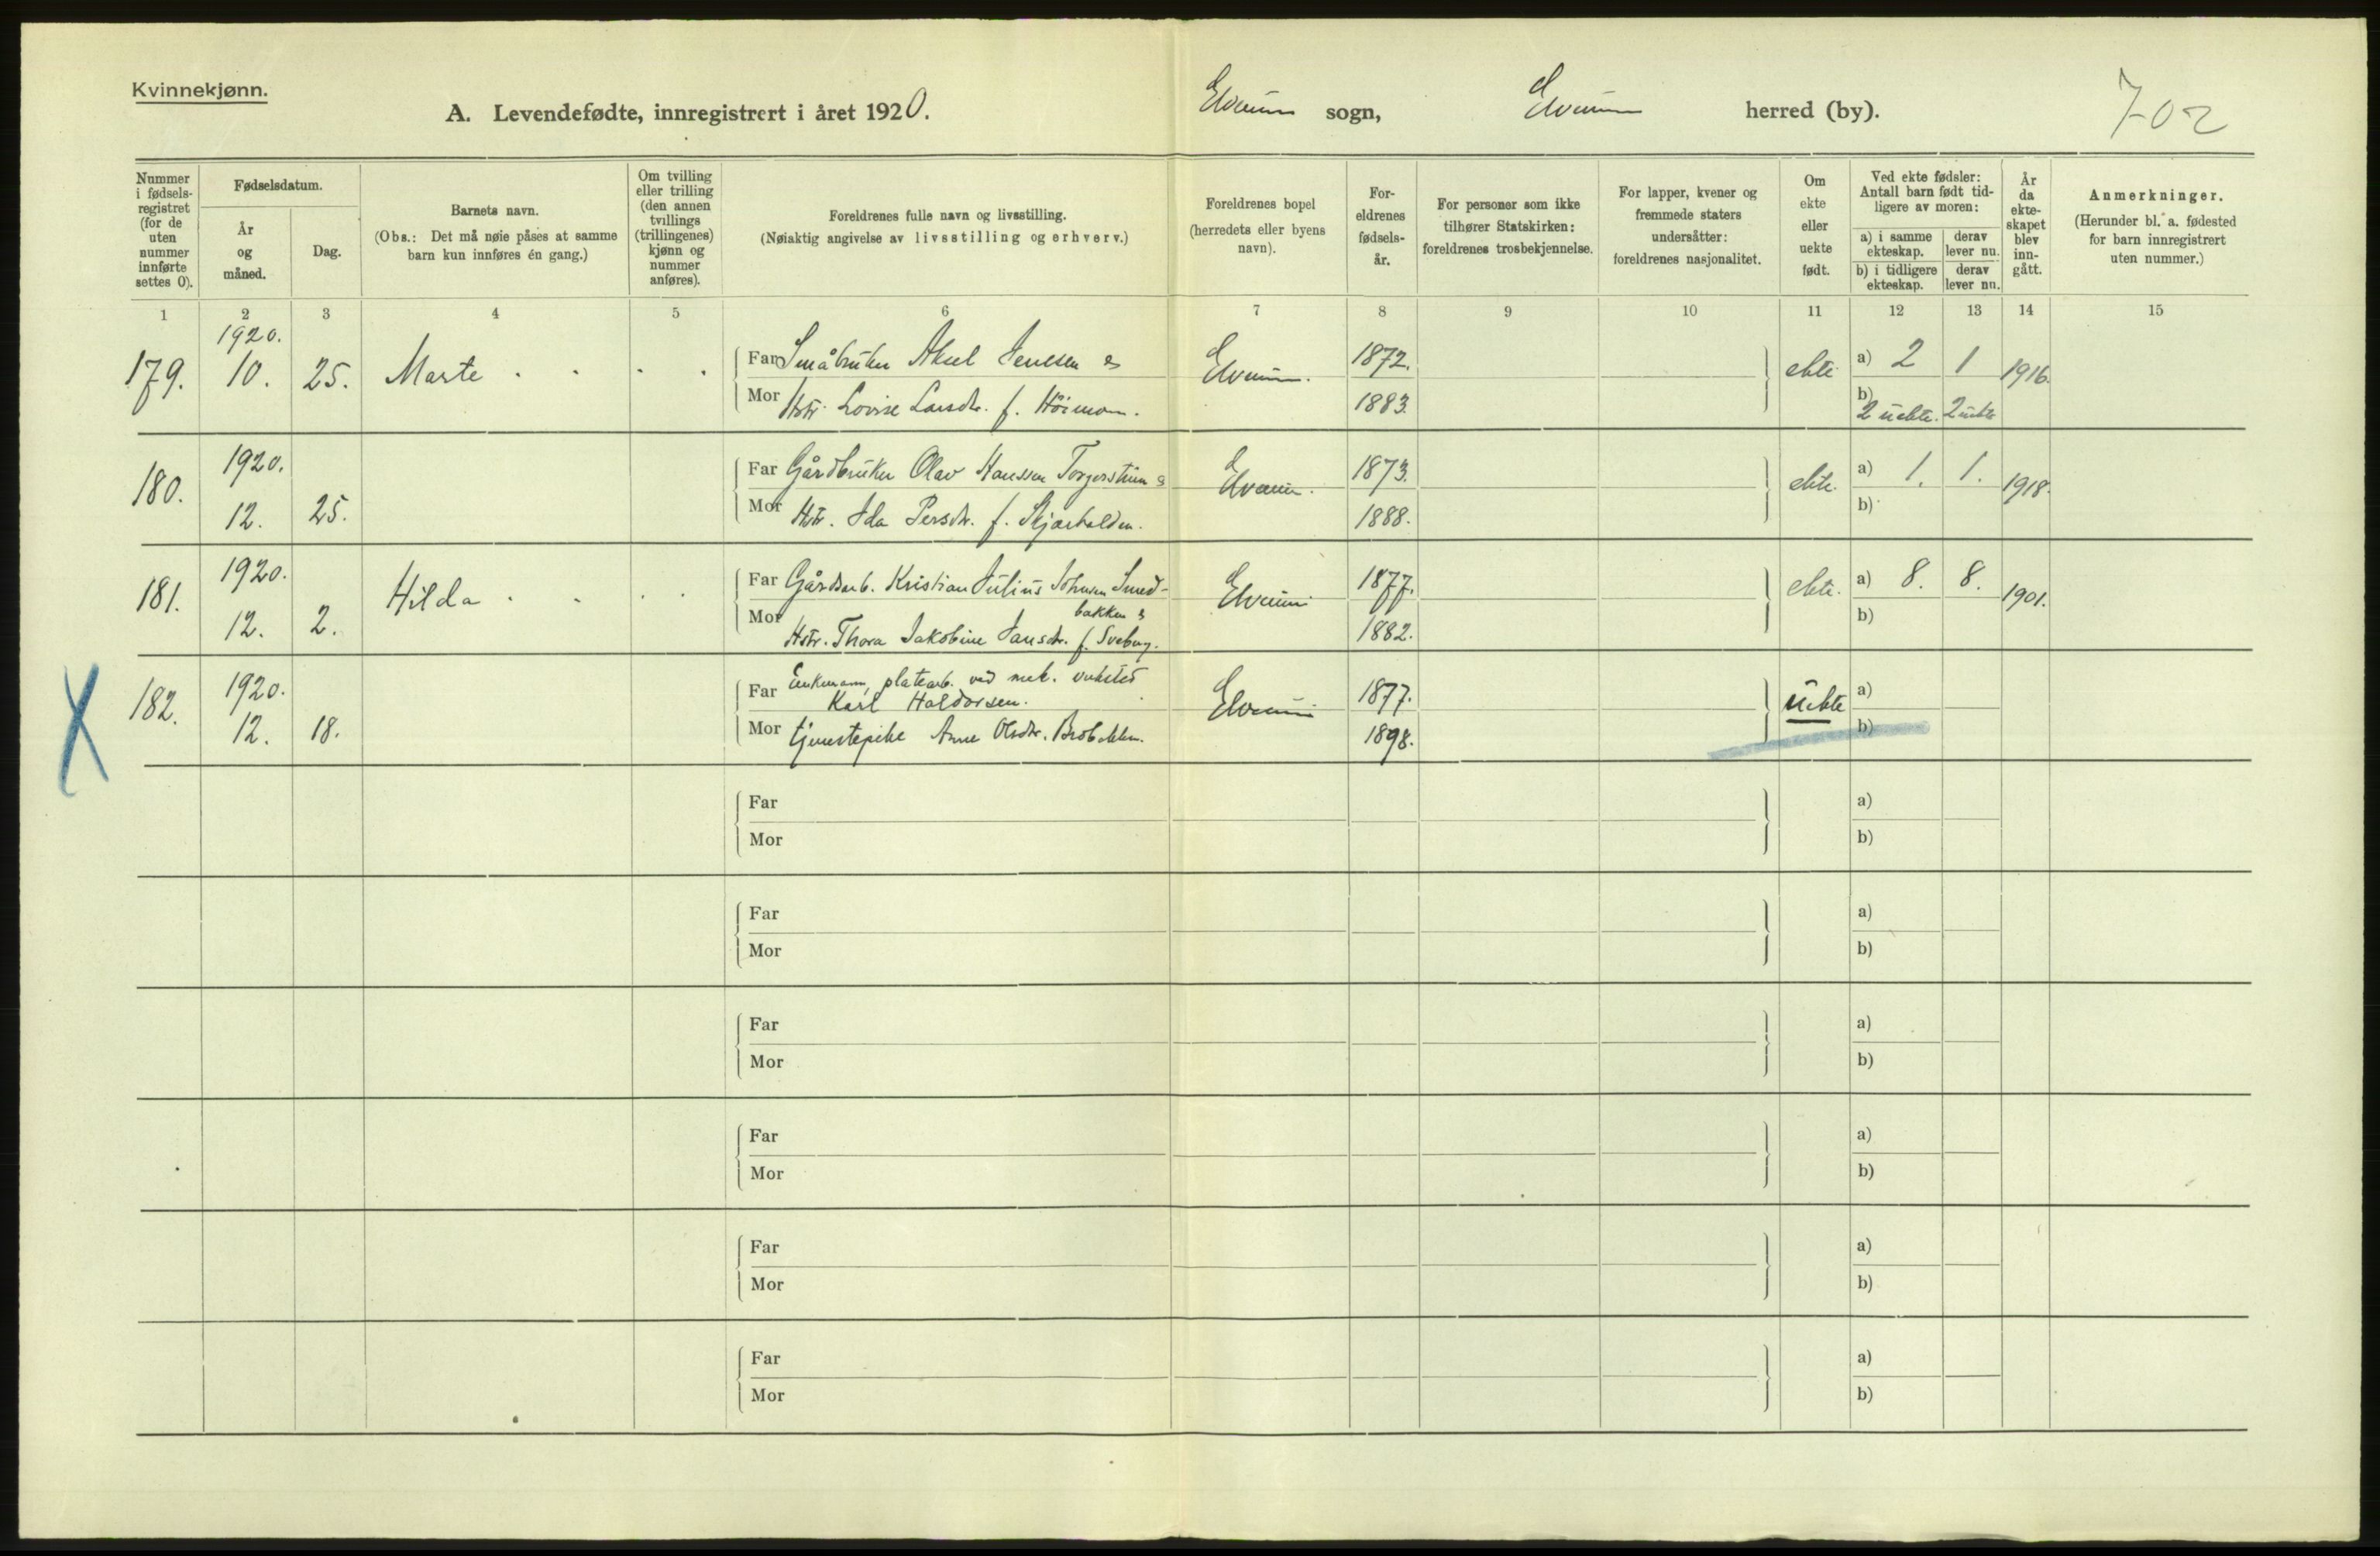 Kvinnekjønn.
A. Levendefødte, innregistrert i året 1920. Elverum sogn, Elverum herred (by). 702
Nummer i fødselsregistret (for de uten nummer innførte settes 0).
Fødselsdatum.
År og måned.
Dag.
Barnets navn.
(Obs.: Det må nøie påses at samme barn kun innføres én gang.)
Om tvilling eller trilling (den annen tvillings (trillingenes) kjønn og nummer anføres).
Foreldrenes fulle navn og livsstilling.
(Nøiaktig angivelse av livsstilling og erhverv.)
Foreldrenes bopel (herredets eller byens navn).
Foreldrenes fødselsår.
For personer som ikke tilhører Statskirken: foreldrenes trosbekjennelse.
For lapper, kvener og fremmede staters undersåtter: foreldrenes nasjonalitet.
Om ekte eller uekte født.
Ved ekte fødsler: Antall barn født tidligere av moren:
a) i samme ekteskap. derav lever nu.
b) i tidligere ekteskap. derav lever nu.
År da ekteskapet blev inngått.
Anmerkninger.
(Herunder bl. a. fødested for barn innregistrert uten nummer.)
1 2 3 4 5 6 7 8 9 10 11 12 13 14 15
179. 1920. 10. 25. Marte
Far Småbruker Aksel Jensen &
Mor Hstr. Lovise Larsdtr. f.
Elverum. 1872. 1883. ekte a) 2 1 1916.
b) 2 uekte. 2 uekte
180. 1920. 12. 25.
Far Gårdbruker Olav Hanssen &
Mor Hstr. Ida Persdtr. f.
Elverum. 1873. 1888. ekte. a) 1. 1. 1918.
b)
181. 1920. 12. 2. Hilda
Far Gårdsarb. Kristian Julius Johnsen Smed-
bakken &
Mor Hstr. Thora Jakobine Jansdtr. f. Sveberg.
Elverum 1877. 1882. ekte. a) 8. 8. 1901.
b)
182. 1920. 12. 18.
Far Enkemann, platearb. ved mek. verksted
Karl Haldorsen.
Mor tjenestepike Anne Olsdtr.
Elverum 1877. 1898. uekte a)
b)
Far a)
Mor b)
Far a)
Mor b)
Far a)
Mor b)
Far a)
Mor b)
Far a)
Mor b)
Far a)
Mor b)